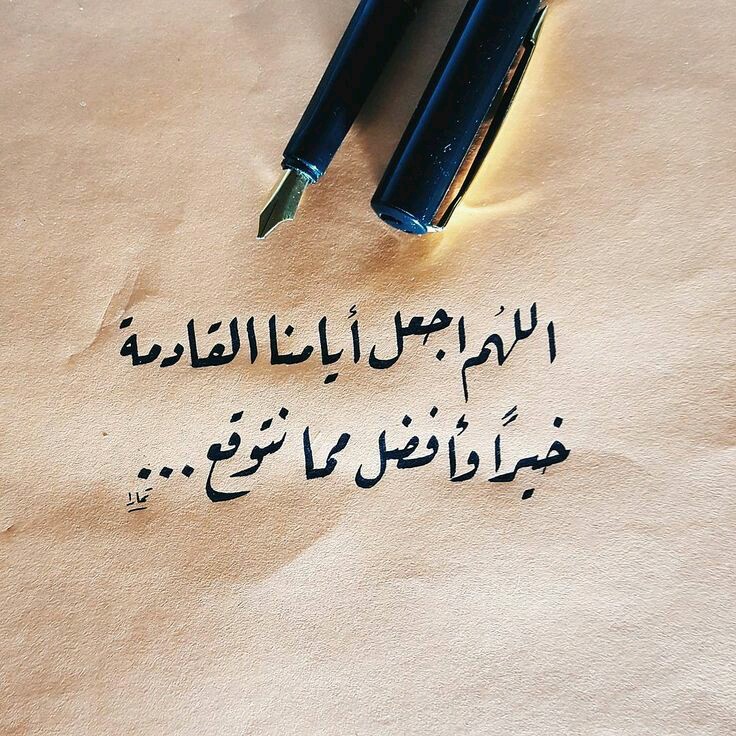 اللهُم اجعل أيامنا القادمة
خيراً وأفضل مما نتوقع...
تمارا